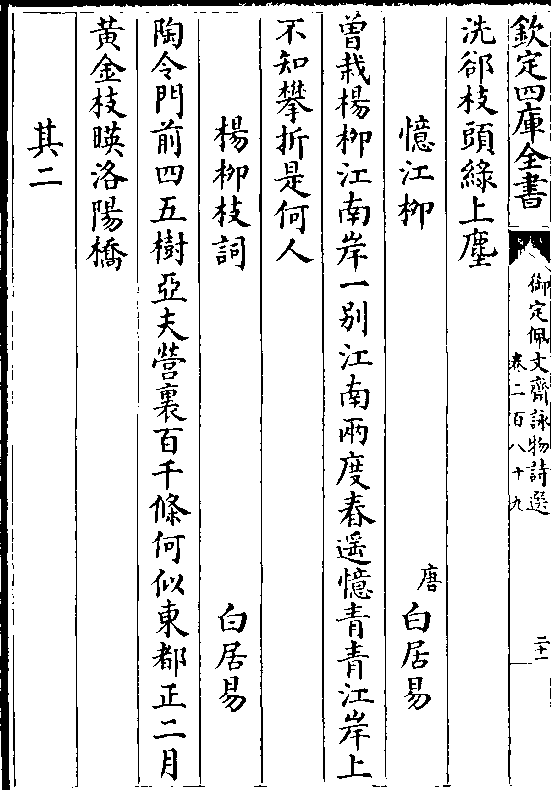 欽定四庫全書
御定佩文齋詠物詩選
卷二百八十九
二十一
洗郤枝頭綠上塵
憶江柳 唐白居易
曽栽楊柳江南岸一别江南兩度春遥憶青青江岸上
不知攀折是何人
楊柳枝詞 白居易
陶令門前四五樹亞夫營裏百千條何似東都正二月
黃金枝暎洛陽橋
其二